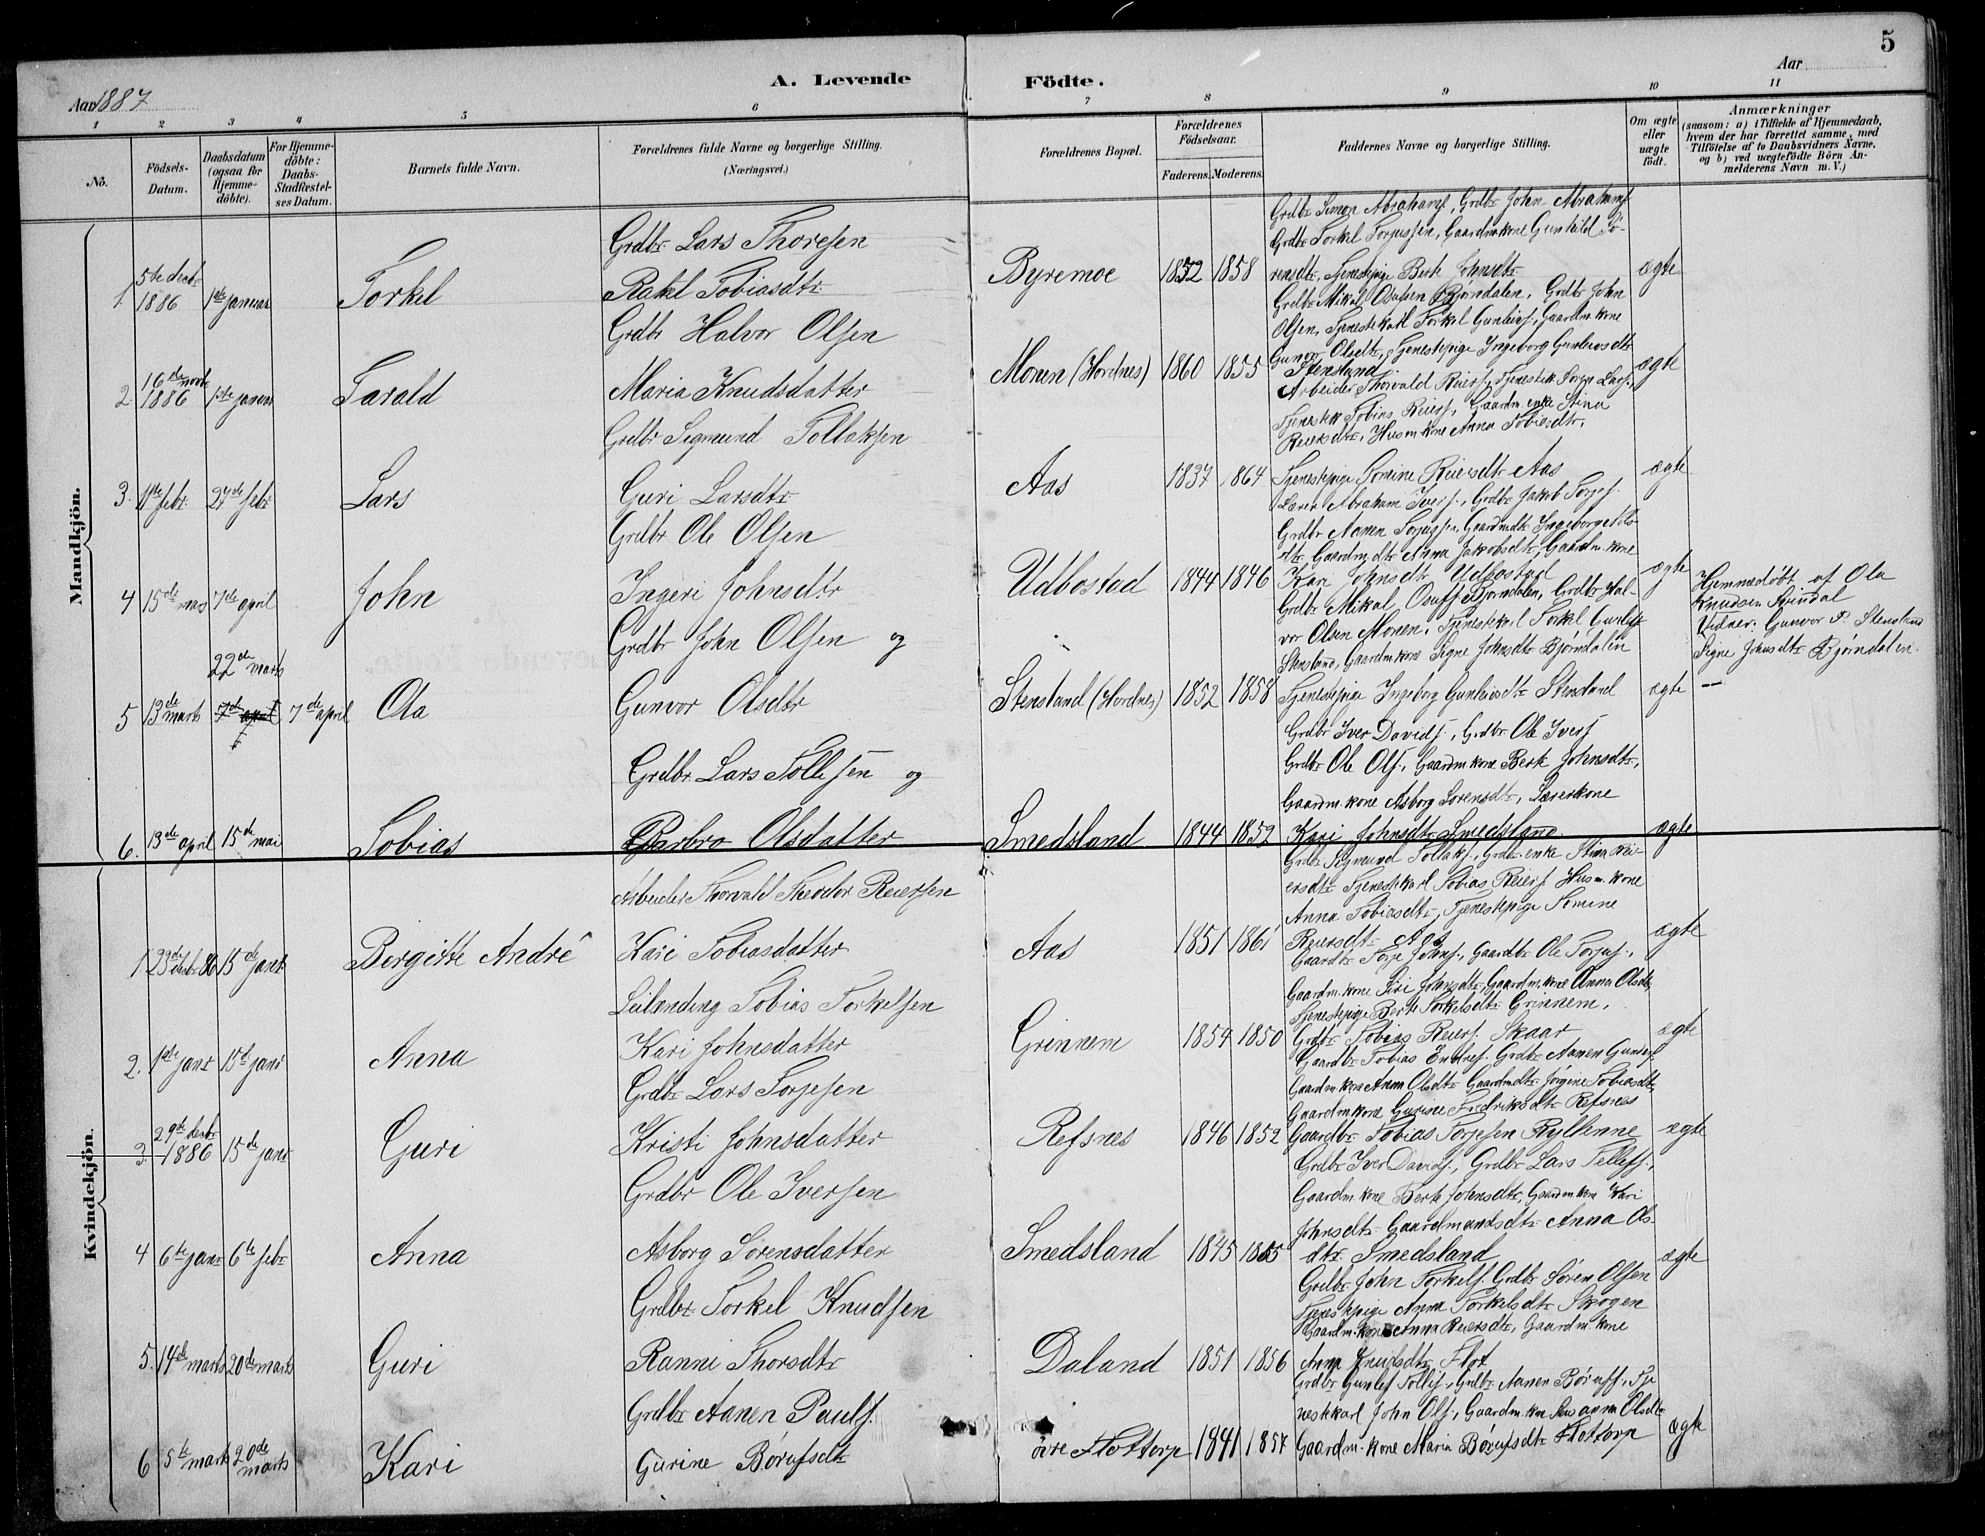 5
A. Levende Födte.
Aar 1887
Aar
1 2 3 4 5 6 7 8 9 10 11
No.
Födsels-Datum.
Daabsdatum (ogsaa for Hjemme-döbte).
For Hjemme-döbte: Daabs-Stadfæstel-ses Datum.
Barnets fulde Navn.
Forældrenes fulde Navne og borgerlige Stilling.
(Næringsvei.)
Forældrenes Bopæl.
Forældrenes Födselsaar.
Faderens. Moderens.
Faddernes Navne og borgerlige Stilling.
Om ægte eller uægte födt.
Anmærkninger
(saasom: a) i Tilfælde af Hjemmedaab,
hvem der har forrettet samme, med
Tilföielse af to Daabsvidners Navne,
og b) ved uægtefödte Börn An-
melderens Navn m. V.)
Mandkjön.
1. 5te decbr 1886 1ste januar Torkel
Grdbr Lars Thoresen
Rakel Tobiasdtr
Byremoe 1852 1858
Grdbr Simon Abrahams, Grdbr John Abrahams
Grdbr Torkel Torjussen, Gaardmkone Gunhild So-
rensdtr, Tjenestepige Berte Johnsdtr
ægte
2. 16de novbr 1886 1ste januar Tarald
Grdbr Halvor Olsen
Maria Knudsdatter
Monen (Hordnes) 1860 1855
Grdbr Mikal Osufsen Bjørndalen, Grdbr John
Olsen, Tjenestekarl Torkel Gunleifs, Gaardm. kone
Gunvor Olsdtr, Tjenestepige Ingeborg Gunleivsdtr
Stensland
ægte
3. 11te febr. 27de febr Lars
Grdbr Sigmund Tollaksen
Guri Larsdtr
Aas 1837 1864
Arbeider Thorvald Reiers, Tjenestek Lars,
Tjenestek Tobias Reiers, Gaardm. enke Stina
Reiersdtr, Husm kone Anna Tobiasdtr,
Tjenestepige Somine Reiersdtr Aas
ægte
4 15de mars 7de april John
Grdbr Ole Olsen
Ingeri Johnsdtr
Udbostad 1844 1846
Lærer Abraham Ivers, Grdbr Jakob Torjes
Grdbr Aanen Torjussen, Gaardmdtr Ingeborg Nils-
dtr Gaardm dtr Anna Jakobsdtr, Gaardm. kone
Kari Johnsdtr Udbostad
ægte
5 13de marts 22de marts 7de april 7de april Ola
Grdbr John Olsen og
Gunvor Olsdtr
Stensland (Hordnes) 1852 1858
Grdbr Mikal Osufs Bjørndalen, Grdbr Hal-
vor Olsen Monen, Tjenestekarl Torkel Gunleifs
Stensland, Gaardm kone Signe Johnsdtr Bjørndalen
Tjenestepige Ingeborg Gunleivsdtr Stensland
ægte —
Hjemmedøbt af Ola
Knudsen Svindal
Vidner: Gunvor Stensland
Signe Johnsdtr Bjørndalen.
6. 13de april 15de mai Tobias
Grdbr. Lars Tellefsen og
Barbro Olsdatter
Smedsland 1844 1852
Grdbr Iver Davids, Grdbr Ole Ivers
Grdbr Ole Ols, Gaardm kone Berte Johnsdtr,
Gaardm. kone Asborg Sorensdtr, Lærerkone
Kari Johnsdtr Smedsland
ægte
Kvindekjön.
1 23de decbr 86 15de janr Bergitte Andrè
Arbeider Thorvald Theodor Reiersen
Kari Tobiasdatter
Aas 1851 1861
Grdbr Sigmund Tollaks, Grdbr. enke Stina Rei-
ersdtr Tjenestekarl Tobias Reiers Husm. kone
Anna Tobiasdtr, Tjenestepige Somine
Reiersdtr Aas
ægte
2. 1ste janr 15de janr Anna
Leilending Tobias Torkelsen
Kari Johnsdatter
Grinnem 1854 1850
Gaardbr Torje Johns, Gaardbr Ole Torjus,
Gaardm. kone Siri Johnsdtr Gaardm. kone Anna Olsdtr,
Tjenestepige Berte Torkelsdtr Grinnem,
Grdbr Tobias Reiers. Skaar
ægte
3. 29de decbr 1886 15de janr Guri
Grdbr Lars Torjesen
Kristi Johnsdatter
Refsnes 1846 1852
Gaardbr Tobias Endres. Grdbr Aanen Gunders
Gaardm kone Anna Olsdtr Gaardmdtr Jorgine Tobiasdtr,
Gaardm kone Gurine Fredriksdtr Refsnes
Gaardbr Tobias Torjesen
ægte
4 6te janr 6te febr Anna
Grdbr Ole Iversen
Asborg Sörensdatter
Smedsland 1845 1855
Grdbr Iver Davids, Grdbr Lars Tellefs,
Gaardm. kone Berte Johnsdtr, Gaardm kone Kari
Johnsdtr Gaardmandsdtr Anna Ols-
dtr Smedsland
ægte
5. 14de marts 20de marts Guri
Grdbr Torkel Knudsen
Ranni Thorsdtr
Daland 1851 1856
Grdbr John Torkels. Grdbr Sören Olsen
Tjenestepige Anna Torkelsdtr Skogen
Gaardm. kone Anna Reiersdtr, Gaardm. kone
Anna Knudsdtr Flot
6 5te marts 20de marts Kari
Grdbr Aanen Pauls.
Gurine Børufsdtr
övre Flottorp 1841 1857
Grdbr Gunlef Tollefs, Grdbr Aanen Børufs, Tje
nestekarl John Ols, Gaardm. kone Susanna Olsdtr
Gaardm. kone Maria Børufsdtr Flottorp
ægte